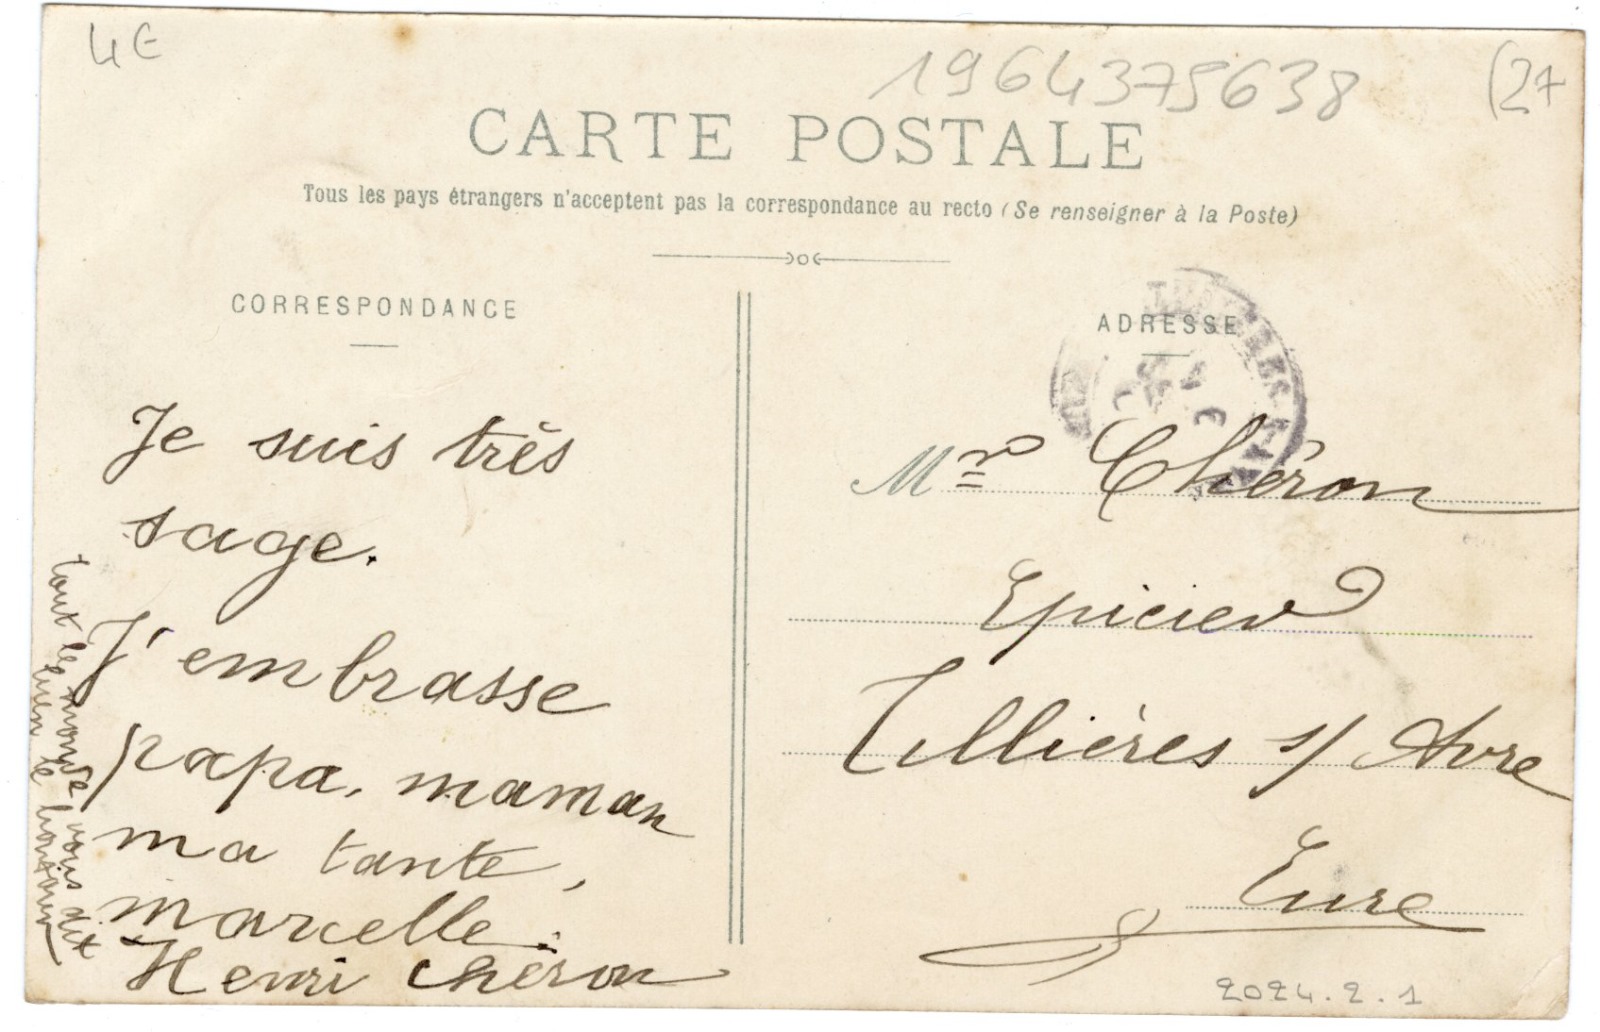 4€
1964375638
(27
CARTE POSTALE
Tous les pays étrangers n'acceptent pas la correspondance au recto (Se renseigner à la Poste)
CORRESPONDANCE
Je suis très
sage.
J'embrasse
papa, maman
ma tante,
marcelle.
Henri Chéron
tout le monde vous dit
bien le bonjour
ADRESSE
Mr Chéron
Epicier
Tillières s/ Avre
Eure
2024.2.1